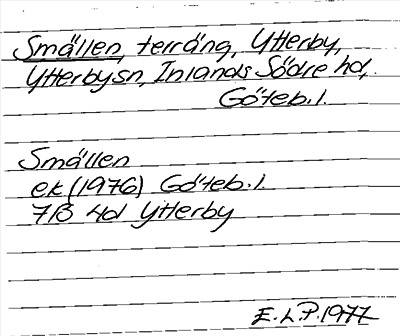 Smällen, terräng, Ytterby,
Ytterby sn, Inlands Södre hd,
Göteb. l.
Smällen
ek (1976) Göteb. l.
7B 4d Ytterby
E.L.P. 1977